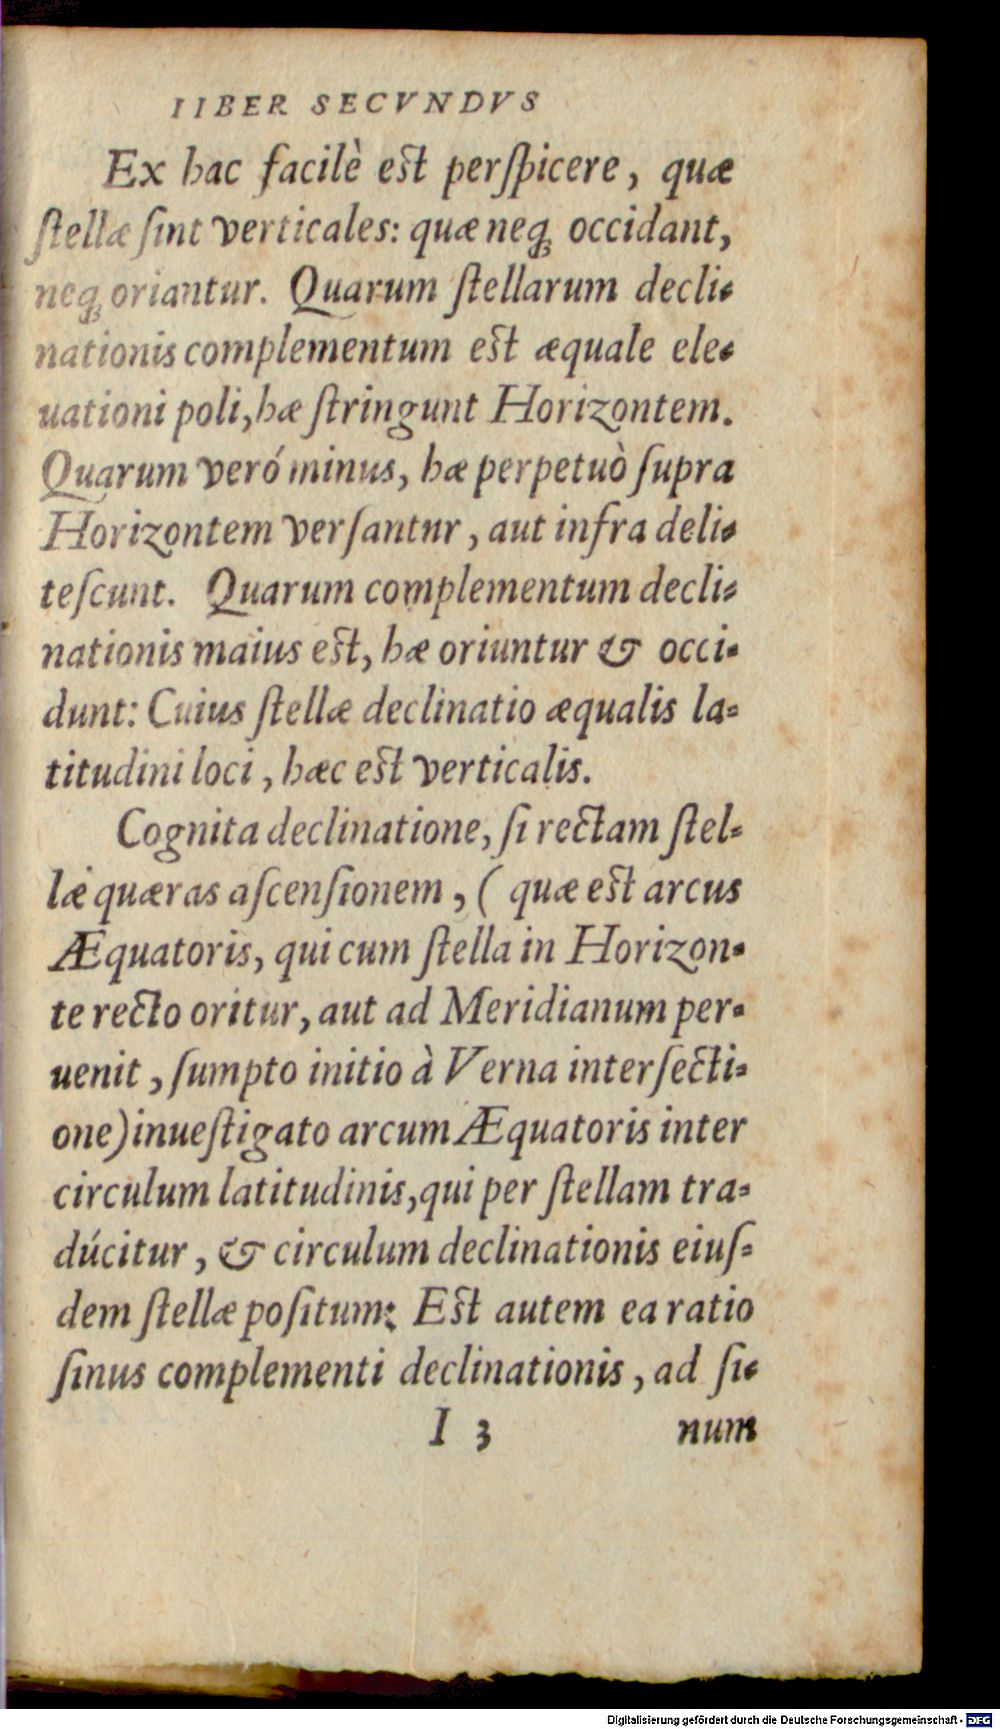 IIBER SECVNDVS
Ex hac facilè est perſpicere, quæ
ſtellæ ſint verticales: quæ neq; occidant,
neq; oriantur. Quarum ſtellarum decli-
nationis complementum est æquale ele-
uationi poli, hæ ſtringunt Horizontem.
Quarum veró minus, hæ perpetuò ſupra
Horizontem verſantnr, aut infra deli-
teſcunt. Quarum complementum decli-
nationis maius est, hæ oriuntur & occi-
dunt: Cuius ſtellæ declinatio æqualis la-
titudini loci, hæc est verticalis.
Cognita declinatione, ſi rectam ſtel-
læ quæras aſcenſionem, ( quæ est arcus
Æquatoris, qui cum ſtella in Horizon-
te recto oritur, aut ad Meridianum per-
uenit, ſumpto initio à Verna interſecti-
one) inueſtigato arcum Æquatoris inter
circulum latitudinis, qui per ſtellam tra-
dúcitur, & circulum declinationis eiuſ-
dem ſtellæ poſitum: Est autem ea ratio
ſinus complementi declinationis, ad ſi-
I 3 num
Digitalisierung gefördert durch die Deutsche Forschungsgemeinschaft - DFG